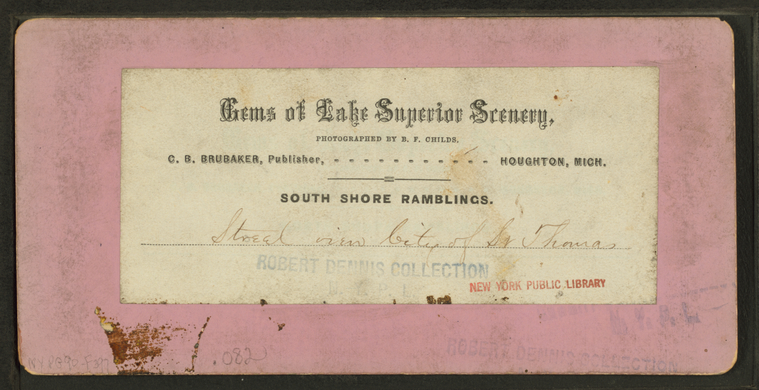 Gems of Lake Superior Scenery,
PHOTOGRAPHED BY B. F. CHILDS.
C. B. BRUBAKER, Publisher, - - - - - - - - - - - HOUGHTON, MICH.
SOUTH SHORE RAMBLINGS.
Street view City of St Thomas
ROBERT DENNIS COLLECTION
NEW YORK PUBLIC LIBRARY
N. Y. P. L.
ROBERT DENNIS COLLECTION
.082